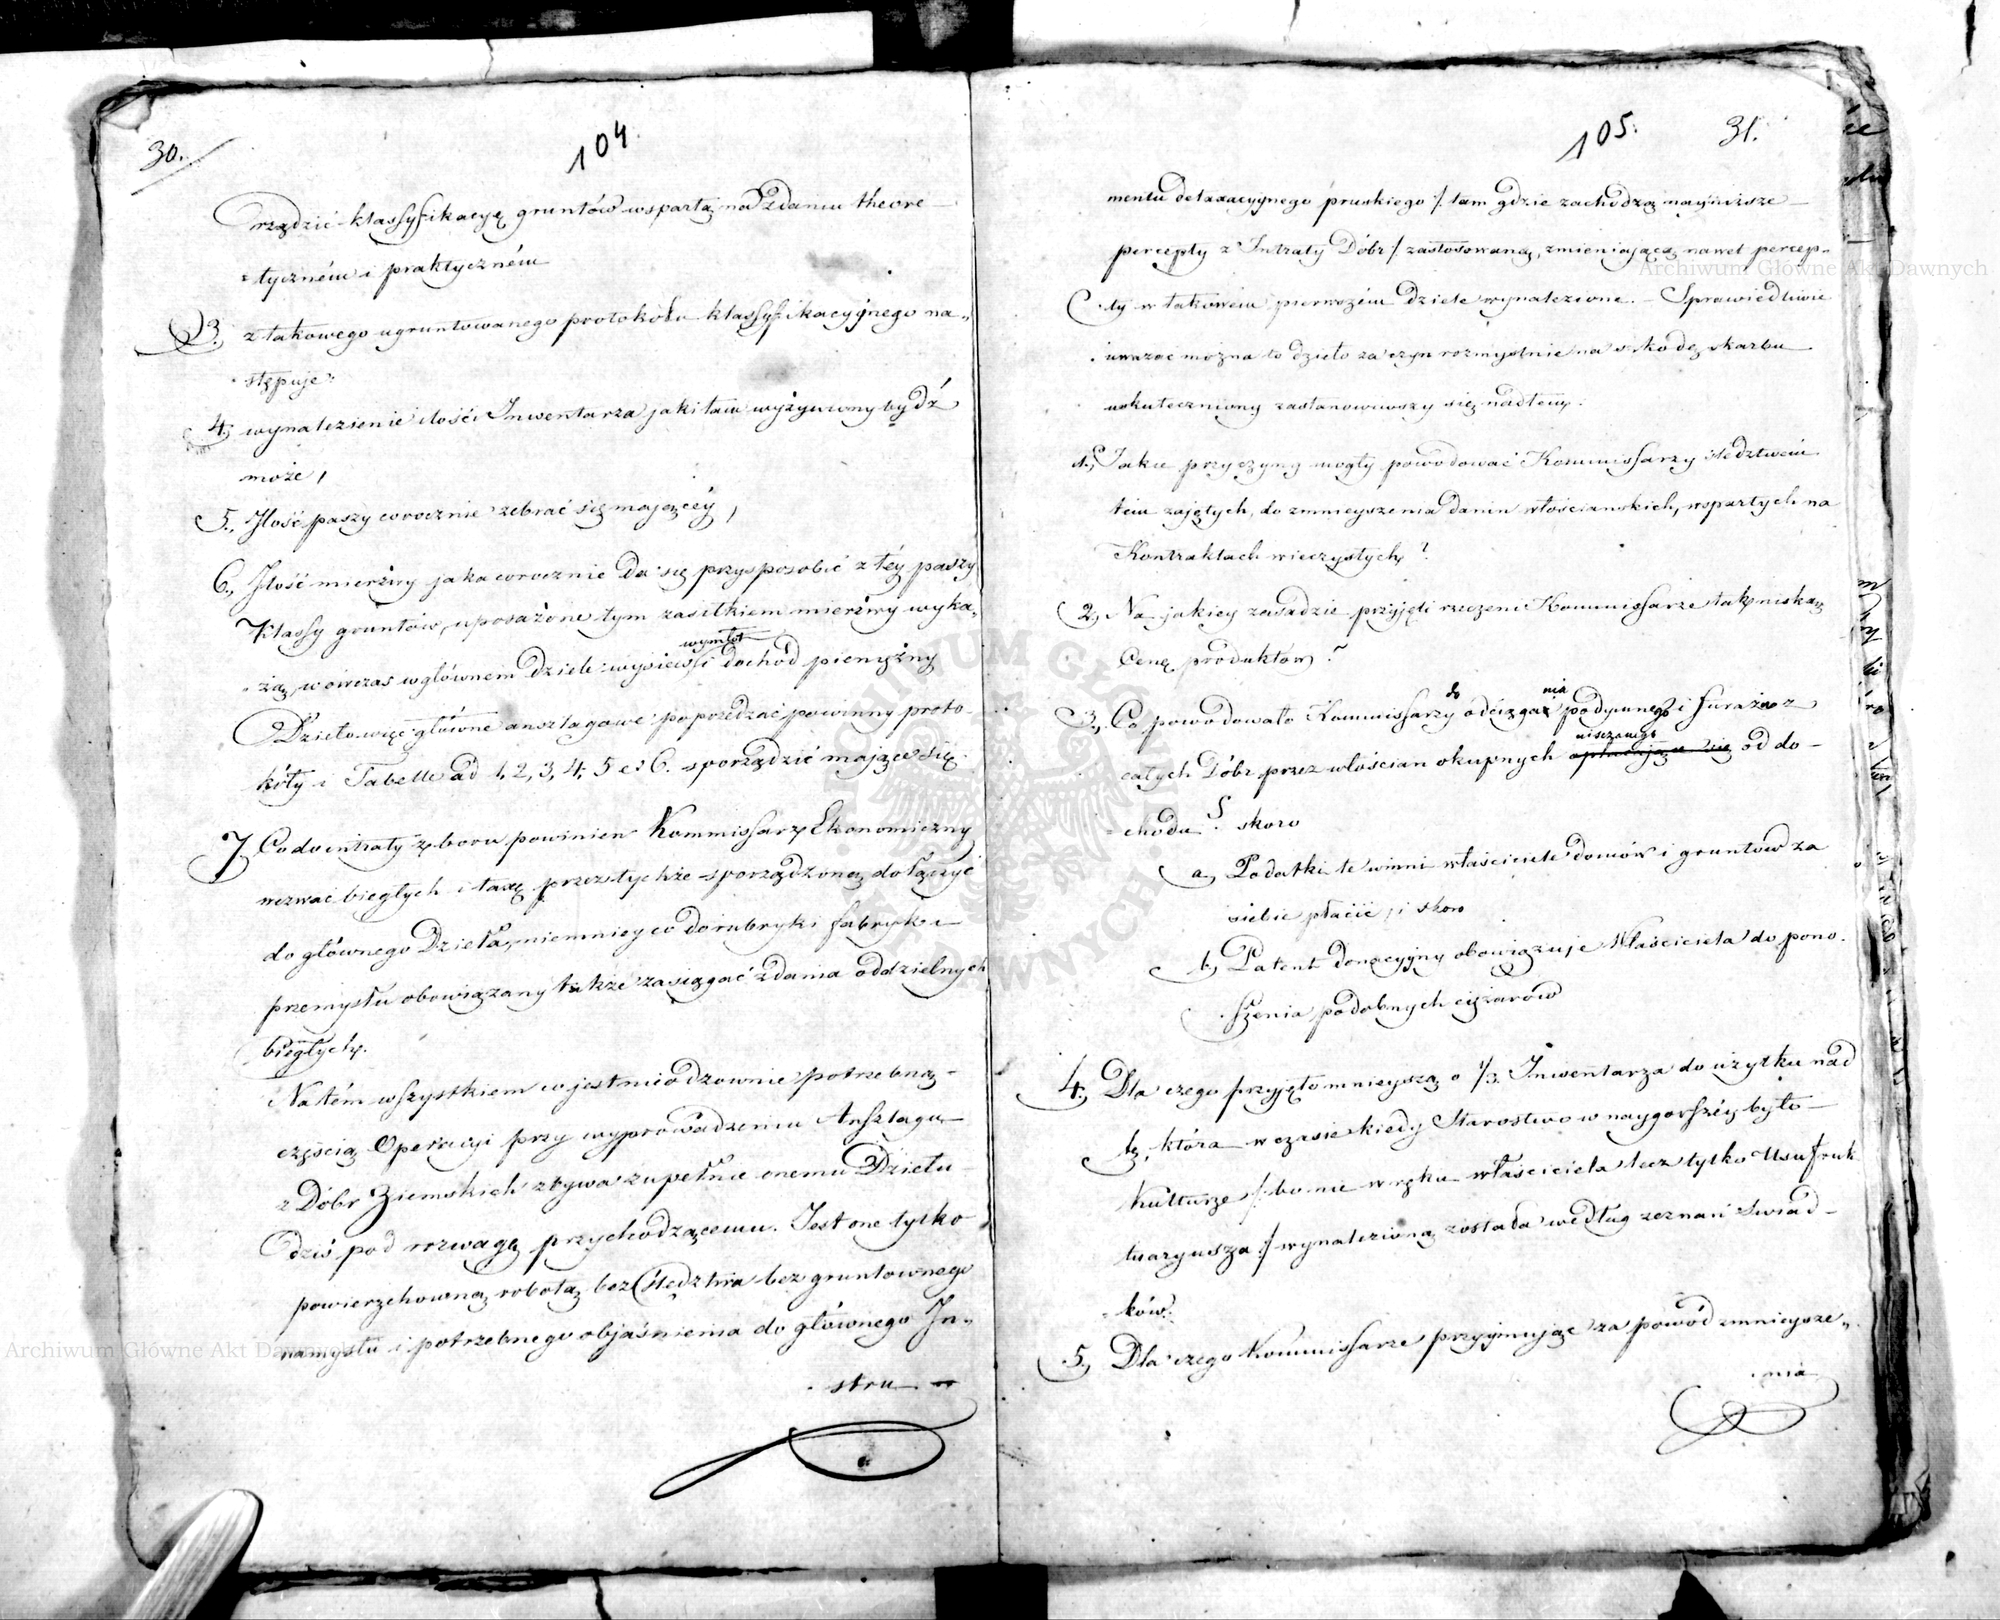 30.
104.
rządzić klassyfikacyę gruntów wspartą na zdaniu theore-
=tyczném i praktyczném
3. z takowego ugruntowanego protokółu klassyfikacyjnego na„
stępuje:
4. wynalezienie ilości Inwentarza jaki tam wyżywiony bydź
może,
5., Ilość paszy corocznie zebrać się mającéy,
6., Ilość mierzwy jaka corocznie da się przysposobić z téy paszy
Klassy gruntów, uposażone tym zasiłkiem mierzwy wyka„
wymłot
„żą wówczas w głównem dziele: wysiew, i dochód pieniężny
Dzieło więc główne ansztagowe poprzedzać powinny proto-
kóły i Tabelle ad 1, 2, 3, 4, 5 et 6. sporządzić mające się.
7. Co do intraty z boru powinien Kommissarz Ekonomiczny
wezwać biegłych i taxę przez tychże sporządzoną dołączyć
do głównego Dzieła, niemniey co do rubryki fabryk i
przemysłu obowiązany także zasięgać zdania oddzielnych
biegłych.
Na tém wszystkiem co jest nieodzownie potrzebną
częścią Operacyi przy wyprowadzeniu Anszlagu
z Dóbr Ziemskich zbywa zupełnie onemu Dziełu
dziś pod rozwagę przychodzącemu. Jest one tylko
powierzchowną robotą bez śledztwa bez gruntownego
namysłu i potrzebnego objaśnienia do głównego In„
stru
105.
31.
mentu detaxacyjnego pruskiego /: tam gdzie zachodzą nayniższe
percepty z Intraty Dóbr :/ zastosowaną, zmieniającą nawet percep-
ty w takowém pierwszém dziele wynalezione. - Sprawiedliwie
uważać można to dzieło za czyn rozmyślnie na szkodę skarbu
uskuteczniony zastanowiwszy się nadtem:
1., Jakie przyczyny mogły powodować Kommissarzy śledztwem
tem zajętych, do zmnieyszenia danin włościańskich, wspartych na
Kontraktach wieczystych?
2, Na jakiey zasadzie przyjęli rzeczeni Kommissarze tak niską
Cenę produktów?
do nia
3., Co powodowało Kommissarzy odciągać podymnego i furażu z
niszonego
całych Dóbr przez włościan okupnych opłacające się od do-
chodu? skoro
a, Podatki te winni właściciele domów i gruntów za
siebie płacić, i skoro
b, Patent donacyjny obowiązuje Właściciela do pono.
szenia podobnych ciężarów
4., Dla czego przyjęto mnieyszą o 1/3 Inwentarza do użytku nad
tę, która w czasie kiedy Starostwo w naygorszéy było
kulturze /: bo nie w ręku właściciela lecz tylko Usufruk
tuaryusza :/ wynalezioną została według zeznań świad-
ków.
5., Dla czego Kommissarze przyjmując za powód zmnieysze„
nia
Archiwum Główne Akt Dawnych
Archiwum Główne Akt Dawnych
ARCHIWUM GŁÓWNE AKT DAWNYCH